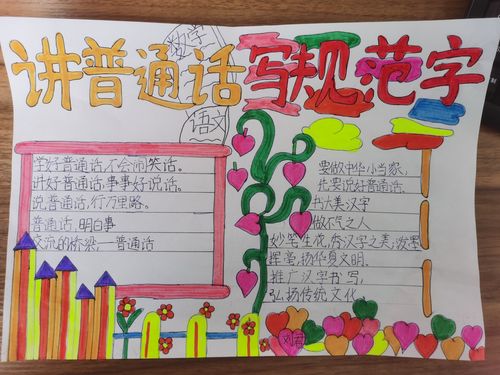 讲普通话 写规范字
数学
语文
学好普通话不会闹笑话。
讲好普通话，事事好说话。
说普通话，行万里路。
普通话，明白事
交流的桥梁——普通话
要做中华小当家，
先要说好普通话。
书大美汉字
做不气之人
妙笔生花，秀汉字之美；泼墨
挥毫，扬华夏文明。
推广汉字书写，
弘扬传统文化。